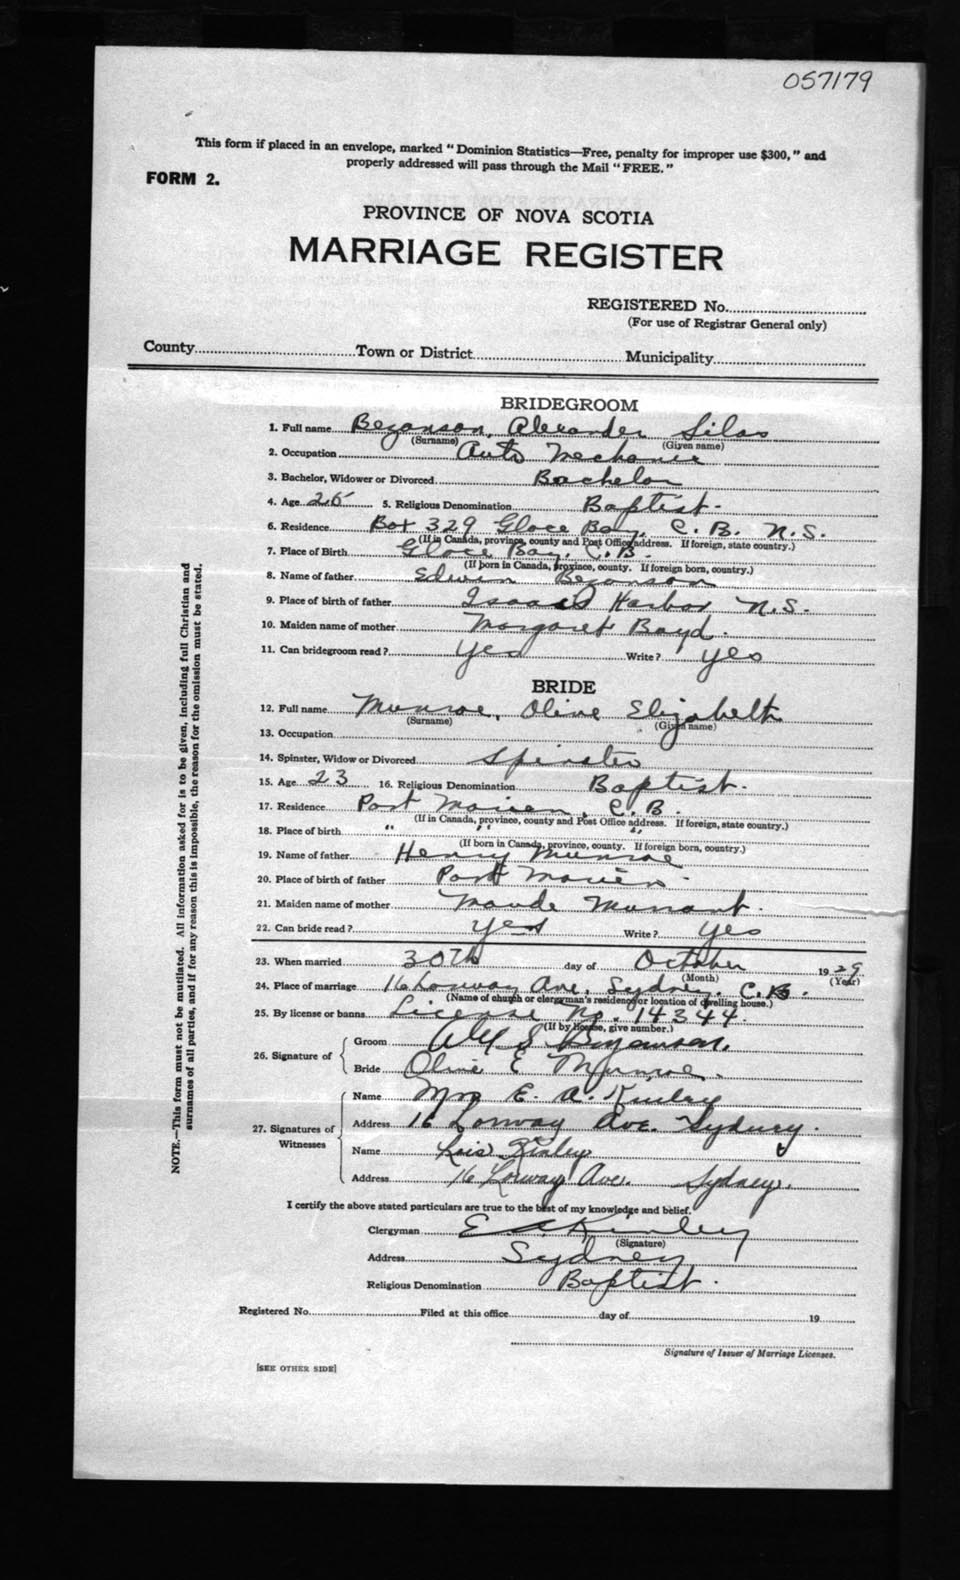 057179
This form if placed in an envelope, marked "Dominion Statistics—Free, penalty for improper use $300," and
properly addressed will pass through the Mail "FREE."
FORM 2.
PROVINCE OF NOVA SCOTIA
MARRIAGE REGISTER
REGISTERED No.
(For use of Registrar General only)
County Town or District Municipality
BRIDEGROOM
1. Full name Bezanson, Alexander Silas
(Surname) (Given name)
2. Occupation Auto Mechanic
3. Bachelor, Widower or Divorced Bachelor
4. Age 25 5. Religious Denomination Baptist.
6. Residence Box 329 Glace Bay, C. B. N.S.
(If in Canada, province, county and Post Office address. If foreign, state country.)
7. Place of Birth Glace Bay, C. B.
(If born in Canada, province, county. If foreign born, country.)
8. Name of father Edwin Bezanson
9. Place of birth of father Isaacs Harbor N.S.
10. Maiden name of mother Margaret Boyd.
11. Can bridegroom read? yes Write? yes
BRIDE
12. Full name Munroe, Olive Elizabeth
(Surname) (Given name)
13. Occupation
14. Spinster, Widow or Divorced Spinster
15. Age 23 16. Religious Denomination Baptist.
17. Residence Port Morien, C. B.
(If in Canada, province, county and Post Office address. If foreign, state country.)
18. Place of birth " " "
(If born in Canada, province, county. If foreign born, country.)
19. Name of father Henry Munroe
20. Place of birth of father Port Morien
21. Maiden name of mother Maude
22. Can bride read? yes Write? yes
23. When married 30th day of October 1929
(Month) (Year)
24. Place of marriage 16 Lorway Ave, Sydney, C.B.
(Name of church or clergyman's residence or location of dwelling house.)
25. By license or banns License No. 14344.
(If by license, give number.)
26. Signature of
Groom Alex S Bezanson.
Bride Olive E Munroe.
27. Signatures of
Witnesses
Name Mrs E. A. Kinley
Address 16 Lorway Ave. Sydney.
Name Lois Kinley
Address 16 Lorway Ave. Sydney.
I certify the above stated particulars are true to the best of my knowledge and belief.
Clergyman E A Kinley
(Signature)
Address Sydney
Religious Denomination Baptist.
Registered No. Filed at this office day of 19
Signature of Issuer of Marriage Licenses.
[SEE OTHER SIDE]
NOTE.—This form must not be mutilated. All information asked for is to be given, including full Christian and
surnames of all parties, and if for any reason this is impossible, the reason for the omission must be stated.